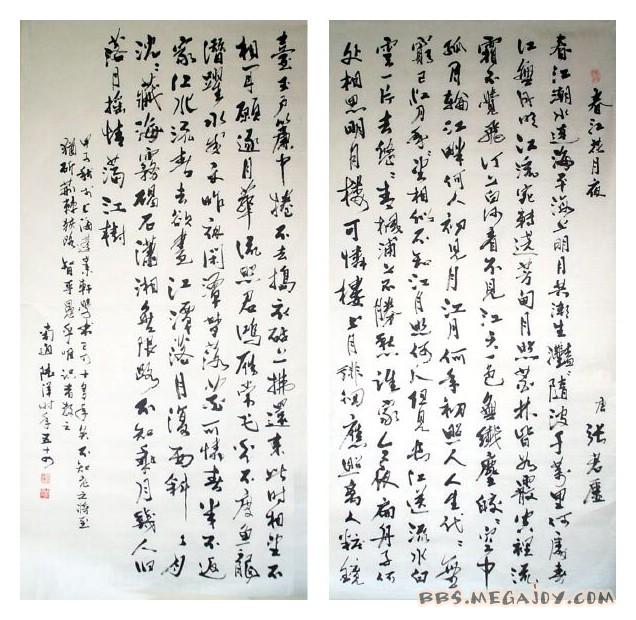 春江花月夜 唐 張若虛
春江潮水連海平海上明月共潮生灩〻隨波千萬里何處春
江無月明江流宛轉遶芳甸月照花林皆如霰空裡流
霜不覺飛汀上白沙看不見江天一色無纖塵皎〻空中
孤月輪江畔何人初見月江月何年初照人人生代〻無
窮已江月年〻望相似不知江月照何人但見長江送流水白
雲一片去悠〻青楓浦上不勝愁誰家今夜扁舟子何
處相思明月樓可憐樓上月徘徊應照離人粧鏡
臺玉戶簾中捲不去搗衣砧上拂還來此時相望不
相聞願逐月華流照君鴻雁常飛光不度魚龍
潛躍水成文昨夜閑潭夢落花可憐春半不還
家江水流春去欲盡江潭落月復西斜〻月
沈〻藏海霧碣石瀟湘無限路不知乘月幾人歸
落月搖情滿江樹
甲子秋於上海
南通 時年五十
BBS.MEGAJOY.COM